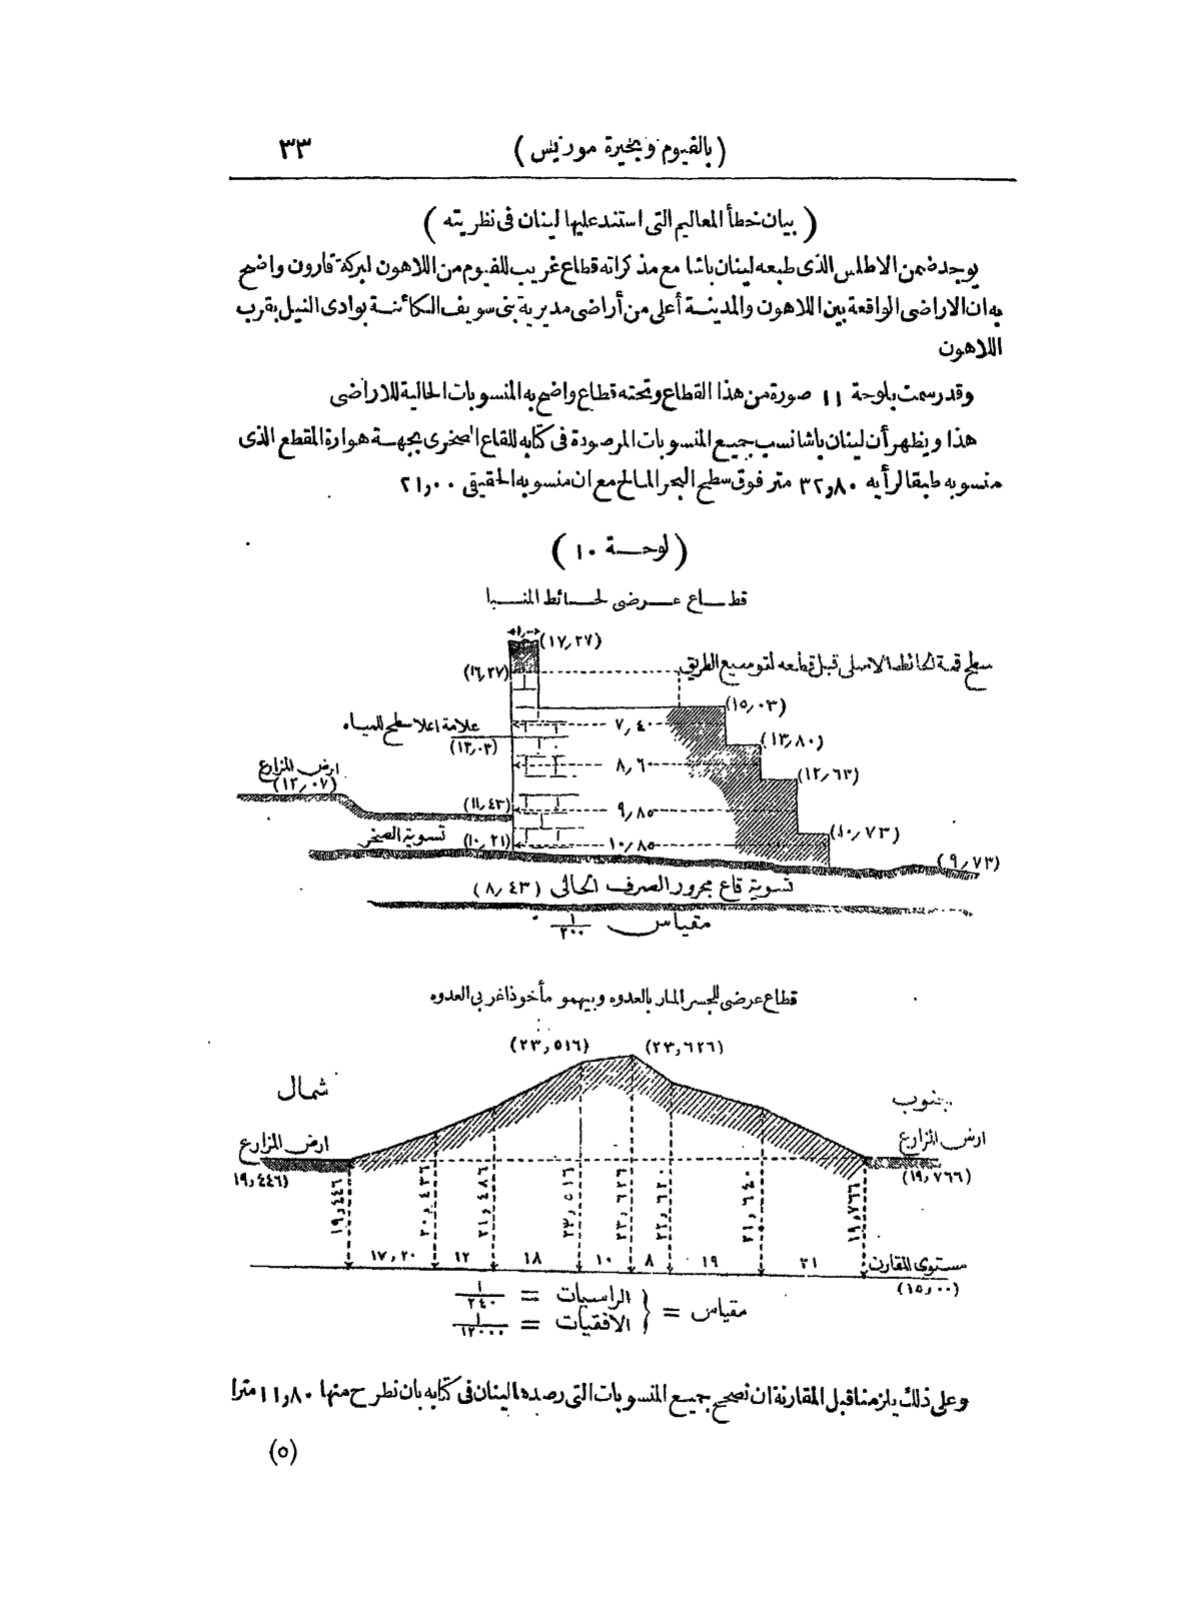 (بالفيوم وبحيرة موريس) ٣٣
(بيان خطأ المعاليم التى استند عليها لينان فى نظريته)
يوجد ضمن الاطلس الذى طبعه لينان باشا مع مذكراته قطاع غريب للفيوم من اللاهون لبركة قارون واضح
به ان الاراضى الواقعة بين اللاهون والمدينة أعلى من أراضى مديرية بنى سويف الكائنة بوادى النيل بقرب
اللاهون
وقد رسمت بلوحة ١١ صورة من هذا القطاع وتحته قطاع واضح به المنسوبات الحالية للاراضى
هذا ويظهر أن لينان باشا نسب جميع المنسوبات المرصودة فى كتابه للقاع الصخرى بجهة هوارة المقطع الذى
منسوبه طبقا لرأيه ٣٢,٨٠ متر فوق سطح البحر المالح مع ان منسوبه الحقيقى ٢١,٠٠
(لوحة ١٠)
قطاع عرضى لحائط المنيا
(١٧,٢٧)
(١٦,٢٧)
سطح قمة الحائط الاصلى قبل قطعه لتوسيع الطريق
(١٥,٠٣)
علامة اعلا سطح للمياه
(١٣,٠٣)
٧,٤٠
(١٣,٨٠)
ارض المزارع
(١٢,٠٧)
٨,٦٠
(١٢,٦٣)
(١١,٤٣)
٩,٨٥
تسوية الصخر
(١٠,٢١)
١٠,٨٥
(١٠,٧٣)
(٩,٧٣)
تسوية قاع مجرور الصرف الحالى (٨,٤٣)
مقياس ١/٢٠٠
قطاع عرضى للجسر المار بالعدوه وبيهمو مأخوذا غربى العدوه
(٢٣,٥١٦) (٢٣,٦٢٦)
شمال
جنوب
ارض المزارع
ارض المزارع
(١٩,٤٤٦)
(١٩,٧٦٦)
١٩,٤٤٦ ٢٠,٤٣٦ ٢١,٤٨٦ ٢٣,٥١٦ ٢٣,٦٢٦ ٢٢,٦٢ ٢١,٦٤٠ ١٩,٧٦٦
١٧,٢٠ ١٢ ١٨ ١٠ ٨ ١٩ ٢١
مستوى المقارن
(١٥,٠٠)
مقياس = { الراسيات = ١/٢٤٠
الافقيات = ١/١٢٠٠٠
وعلى ذلك يلزمنا قبل المقارنة ان نصحح جميع المنسوبات التى رصدها لينان فى كتابه بان نطرح منها ١١,٨٠ مترا
(٥)